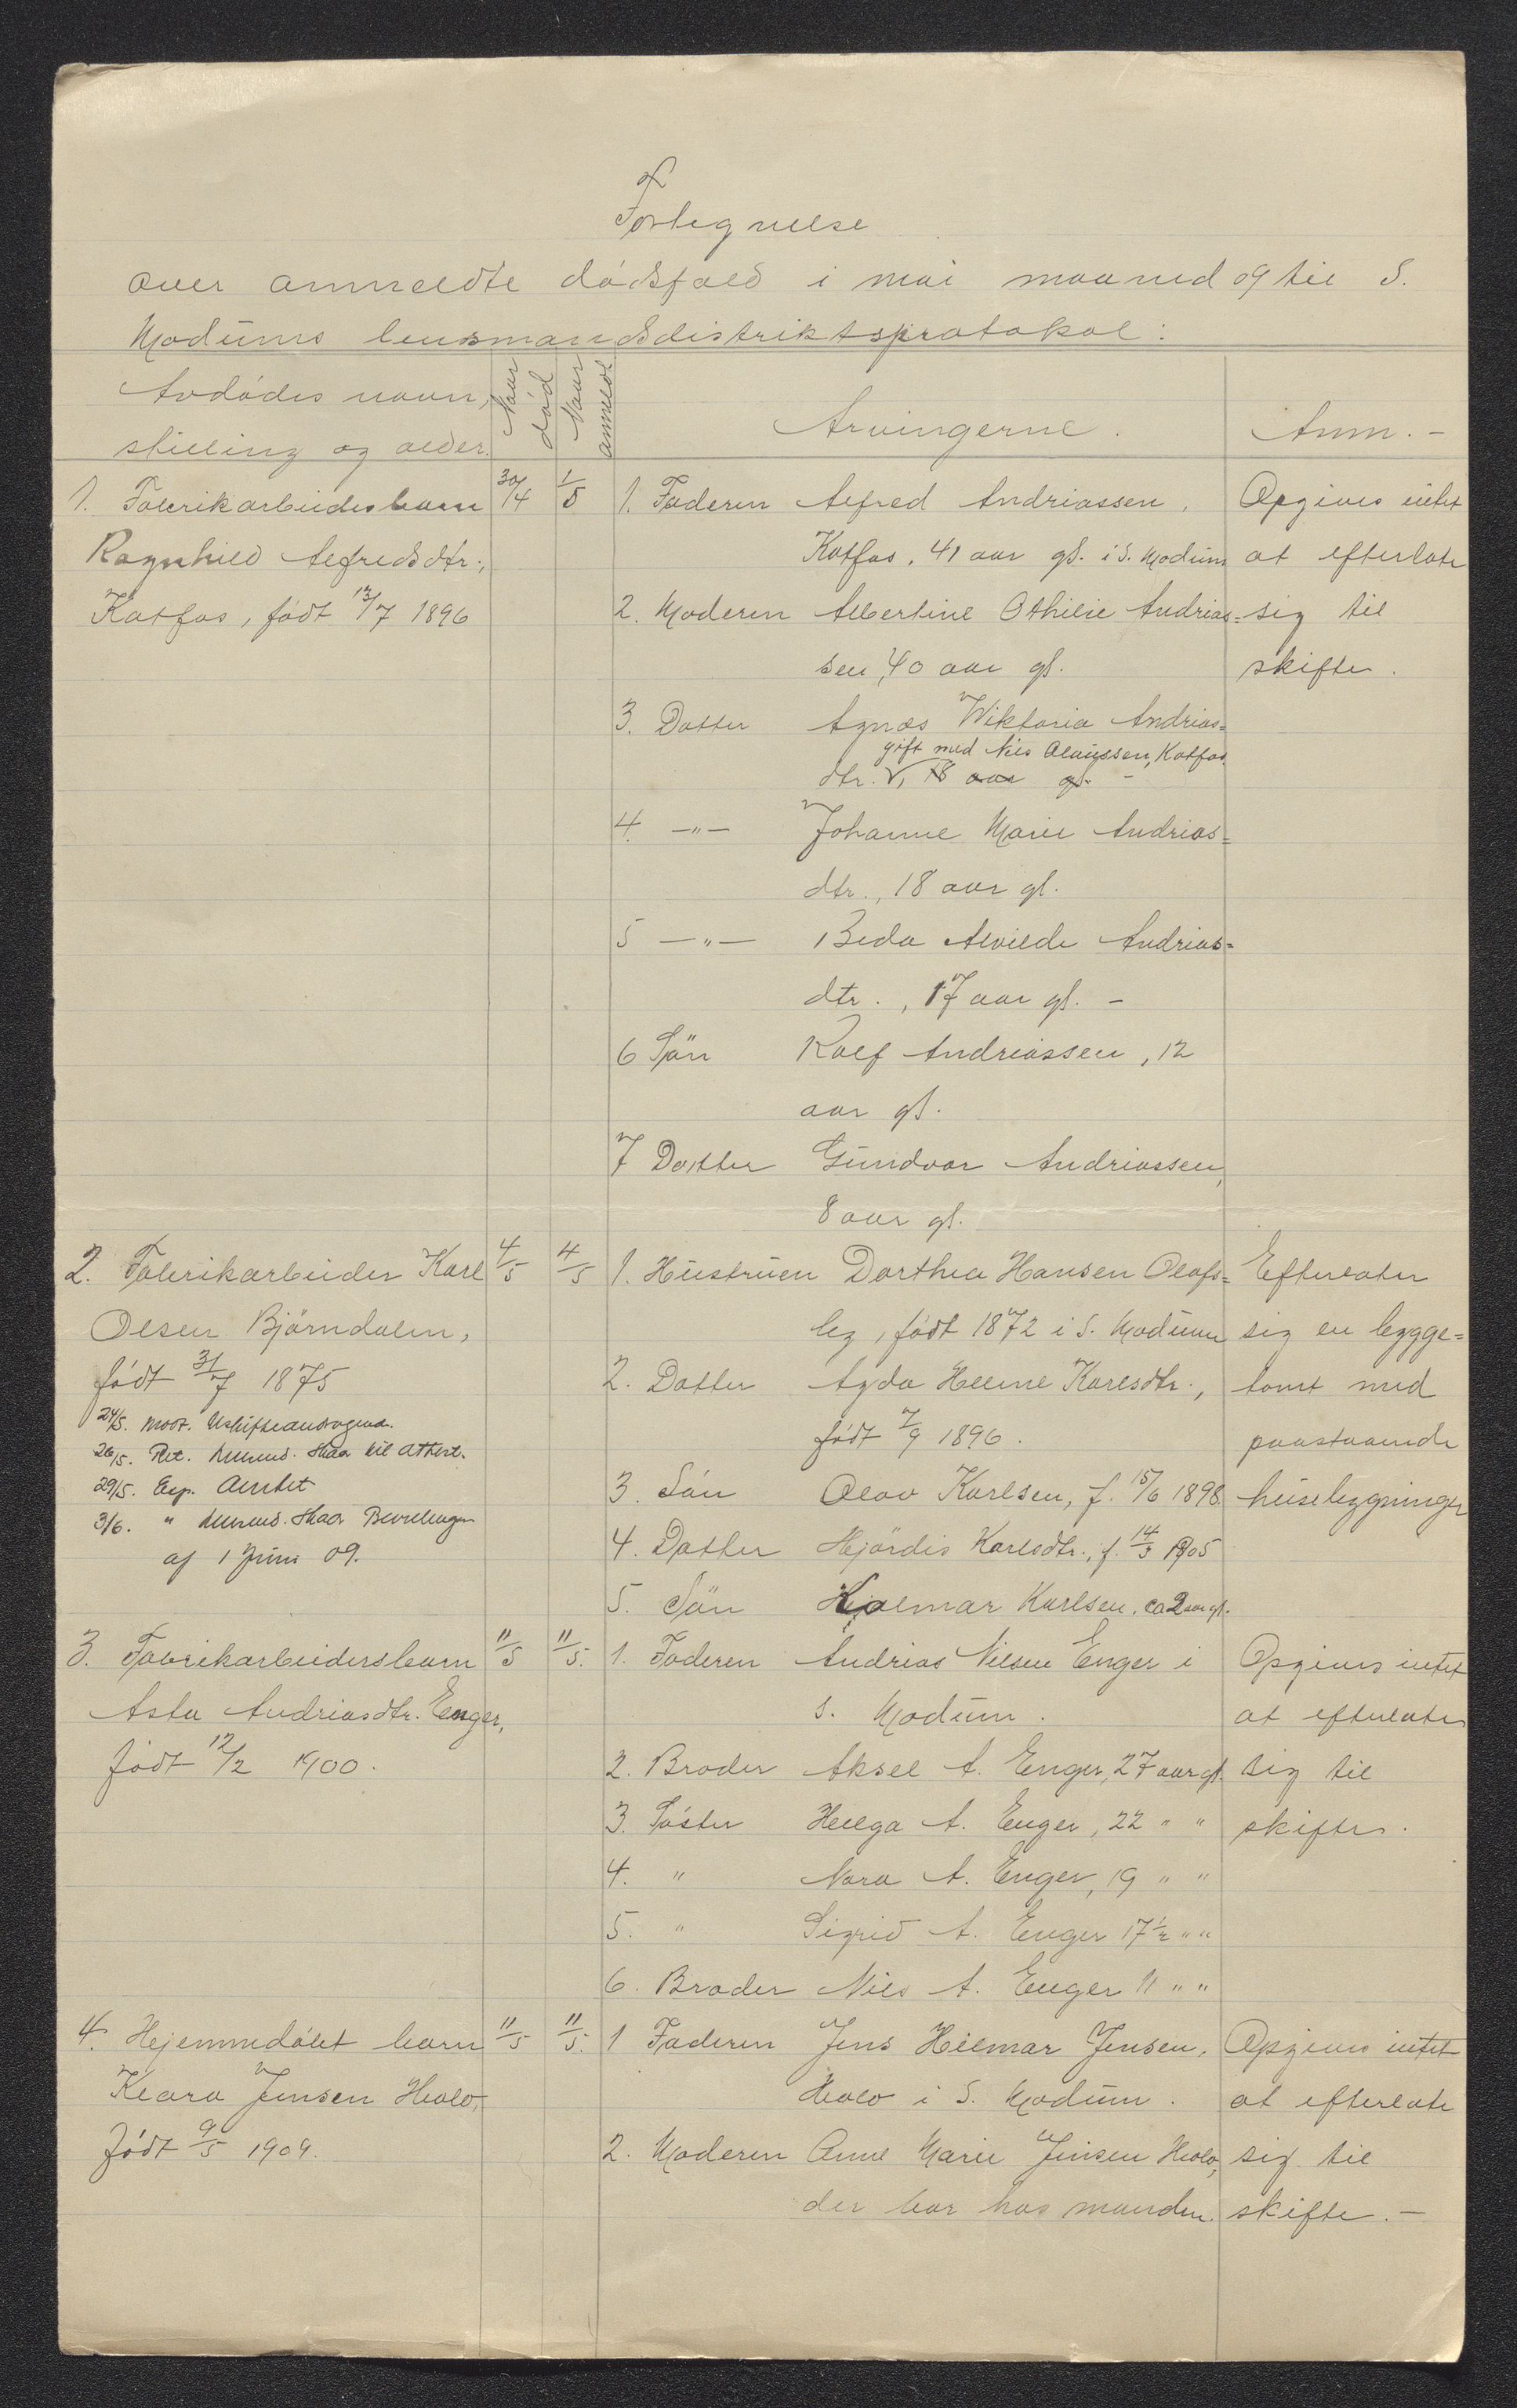 Fortegnelse
over anmeldte dødsfald i mai maaned 09 til S.
Modums lensmandsdistriktsprotokol:
Avdødes navn, stilling og alder.
Naar død
Naar anmeldt
Arvingerne.
Anm. -
1. Fabrikarbeidersbarn 30/4 1/5 1. Faderen Alfred Andriassen, Opgives intet
Ragnhild Alfredsdtr., Katfos, 41 aar gl. i S. Modum at efterlate
Katfos, født 13/7 1896 2. Moderen Albertine Othilie Andrias= sig til
sen, 40 aar gl. skifte.
3. Datter Agnæs Wiktoria Andrias=
gift med Nils Olaussen, Katfos
dtr. V, 18 aar gl. -
4. -"- Johanne Marie Andrias=
dtr., 18 aar gl.
5 -"- Beda Alvilde Andrias=
dtr., 17 aar gl. -
6 Søn Rolf Andriassen, 12
aar gl.
7 Datter Gundvor Andriassen,
8 aar gl.
2. Fabrikarbeider Karl 4/5 4/5 1. Hustruen Dorthea Hansen Olafs= Efterlater
Olsen Bjørndalen, leg, født 1872 i S. Modum sig en bygge=
født 31/7 1875 2. Datter Agda Helene Karlsdtr., tomt med
født 7/9 1896. paastaaende
24/5. Mot. Uskifteandragende.
26/5. Ret. Lensmd. Skaa til Attest.
3. Søn Olav Karlsen, f. 15/6 1898. husebygninger
29/5. Exp. Amtet
3/6. " Lensmd. Skaa Bevillingen
af 1 Juni 09.
4. Datter Hjørdis Karlsdtr., f. 14/3 1905
5. Søn Hjalmar Karlsen, ca 2 aar gl.
3. Fabrikarbeidersbarn 11/5 11/5. 1. Faderen Andrias Nilsen Enger i Opgives intet
Asta Andriasdtr. Enger, S. Modum. at efterlate
født 12/2 1900. 2. Broder Aksel A. Enger, 27 aar gl. sig til
3. Søster Helga A. Enger, 22 " " skifte.
4. " Nora A. Enger, 19 " "
5. " Sigrid A. Enger 17 1/2 " "
6. Broder Nils A. Enger 11 " "
4. Hjemmedøbt barn 11/5 11/5. 1 Faderen Jens Hilmar Jensen, Opgives intet
Klara Jensen Hvalo, Hvalo i S. Modum. at efterlate
født 9/5 1909. 2. Moderen Anne Marie Jensen Hvalo, sig til
der bor hos manden. skifte. -